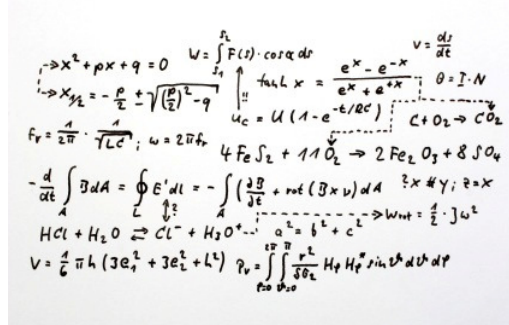 W = ∫ₛ₁^s₂ F(s)·cosα ds
v = ds/dt
→ x² + px + q = 0
→ x₁/₂ = -p/2 ± √((p/2)² - q)
tanh x = (eˣ - e⁻ˣ)/(eˣ + e⁺ˣ)
Θ = I·N
!!
u_c = U(1 - e^(-t/RC))
C + O₂ → CO₂
Fᵣ = 1/2π · 1/√LC ; ω = 2πfᵣ
4 FeS₂ + 11 O₂ → 2 Fe₂O₃ + 8 SO₄
-d/dt ∫_A B dA = ∮_L E'dl = -∫_A (∂B/∂t + rot (B×v) dA
?x # y; z = x
?
→ W_rot = ½ · Jω²
HCl + H₂O ⇌ Cl⁻ + H₃O⁺
a² = b² + c²
V = 1/6 πh (3e₁² + 3e₂² + h²)
Pᵥ = ∫_φ=0^2π ∫_ϑ=0^π r²/ H_φ H_φ* sin ϑ dϑ dφ